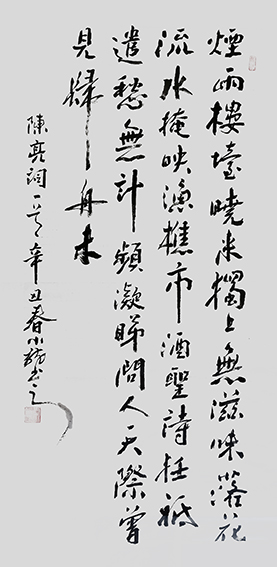 煙雨樓臺曉來獨上無滋味落花
流水掩映漁樵市酒聖詩狂祗
遣愁無計頻凝睇問人天際曾
見歸舟未
陳亮詞一首辛丑春小書之